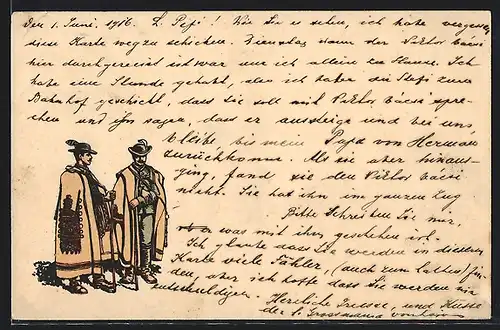 Den 1. Juni. 1916. L. Pepi! Wie Sie es sehen, ich habe vergessen
diese Karte weg zu schicken. Dienstag wann der Viktor bácsi
hier durchgereist ist war nur ich allein zu Hause. Ich
habe eine Stunde gehabt, also ich habe die Stefi zum
Bahnhof geschickt, dass Sie soll mit Viktor bácsi spre-
chen und ihm sagen, dass er aussteige und bei uns
bleibe bis mein Papa von Hermán
zurückkomme. Als sie aber hinaus-
ging, fand sie den Viktor bácsi
nicht. Sie hat ihn im ganzen Zug
Bitte Schreiben Sie mir,
was mit ihm geschehen ist.
Ich glaube dass Sie werden in diesem
Karte viele Fähler, (auch zum Lattes) fin-
den, aber ich hoffe dass Sie werden mir
entschuldigen. Herzliche Grüsse, und Küsse
der l. Grossmama von